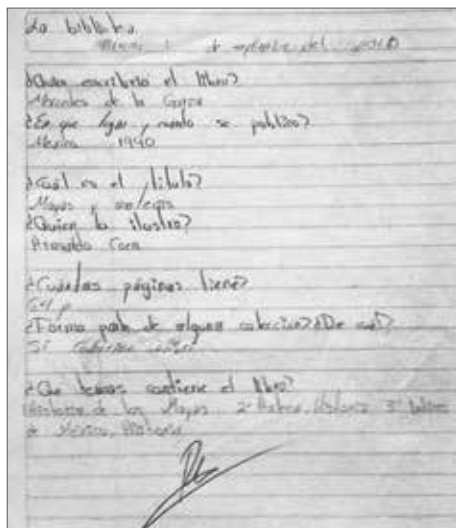 La biblioteca
1 de septiembre del 2010
¿Quien escribrio el libro?
Mercedes de la Garza
¿En que lugar y cuando se publico?
Mexico 1990
¿Cual es el titulo?
Mayas y
¿Quien lo ilustro?
Armando
¿Cuántas páginas tiene?
64 p
¿Forma parte de alguna coleccion? ¿De cual?
Si
¿Que temas contiene el libro?
Historia de los Mayas 2° Historia 3°
de México, Historia